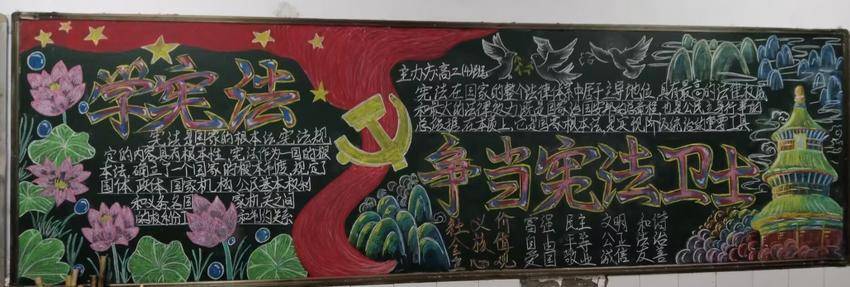 学宪法
宪法是国家的根本法,宪法规
定的内容具有根本性,宪法作为一国的根
本法,确立了一个国家的根本制度,规定了
国体、政体、国家机构、公民基本权利
和义务各国 家机关之间
的权利分工 和制约关系
主力方高二(4)班
宪法在国家的整个法律体系中居于主导地位,具有最高的法律权威
和最大的法律效力
国家根本法,是实现阶级统治的重要工具
争当宪法卫士
社会主义核心价值观
富强 民主 文明 和谐
自由 平等 公正 法治
爱国 敬业 诚信 友善